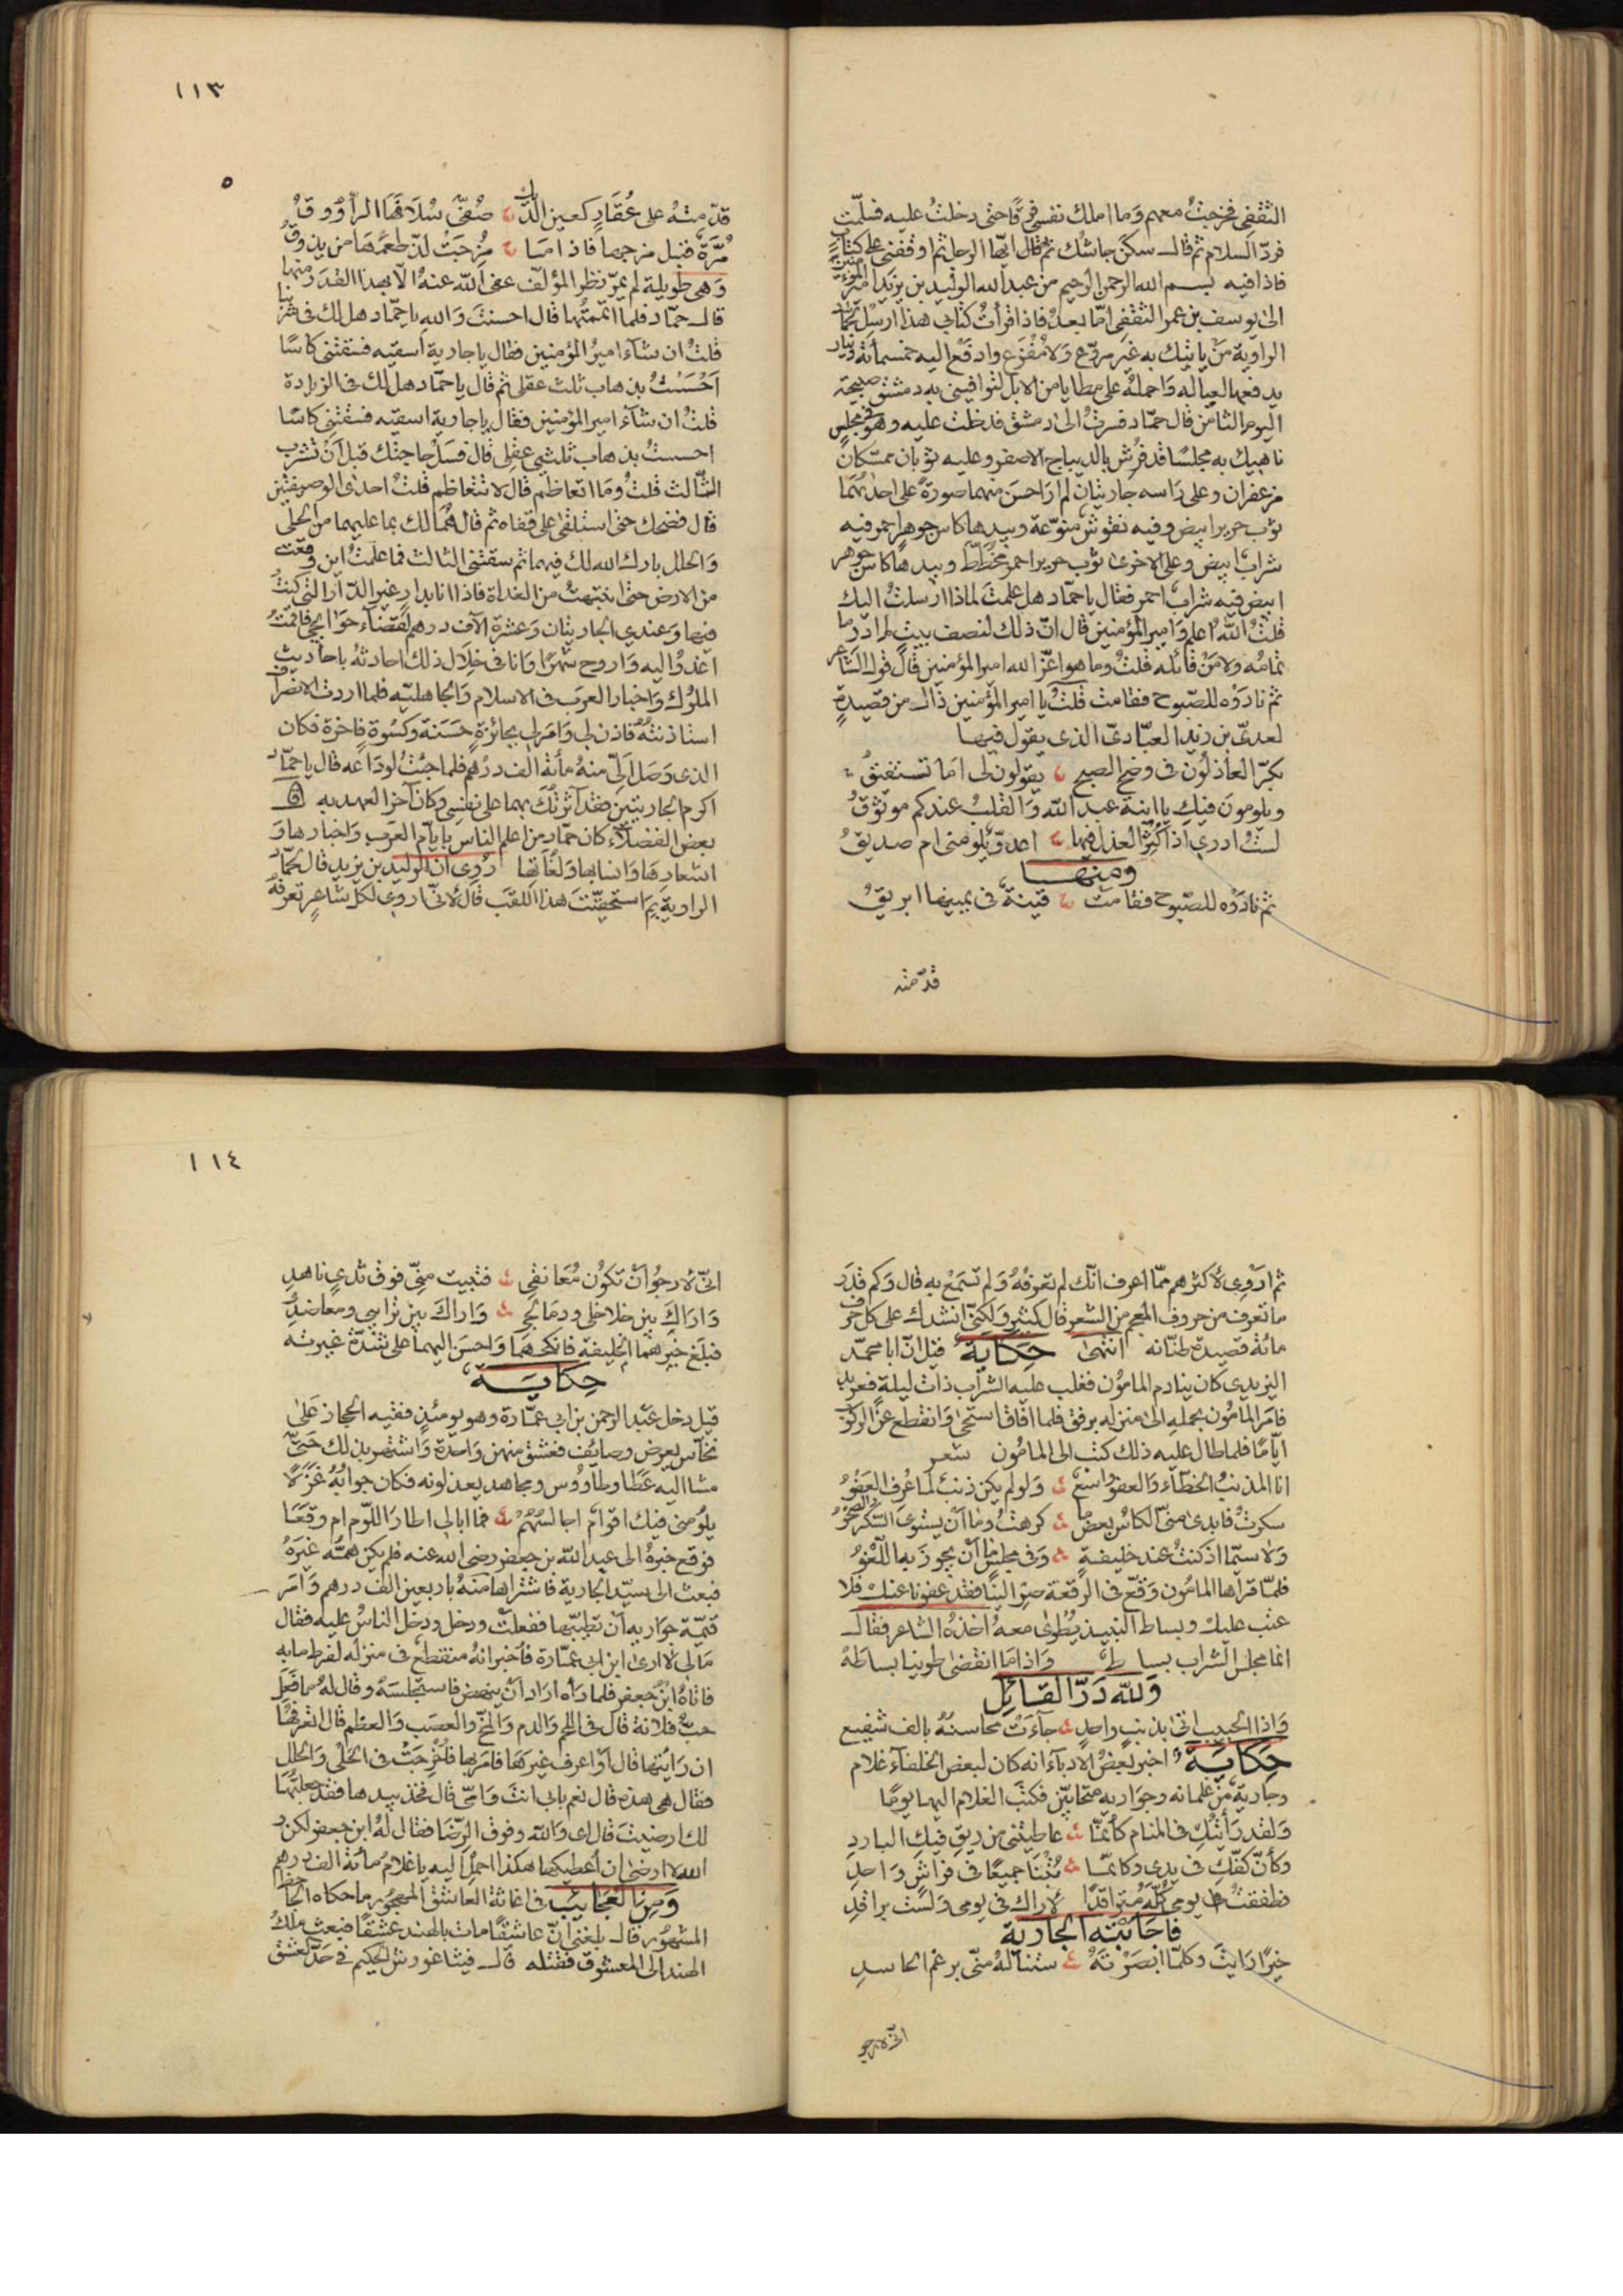 الثقفى فخرجتُ معهم وَما املك نفسى فرقًا حتى دخلتُ عليه فسلّمت
فردّ السلام ثم قال سكّن جاشك ثم قال ايّها الرجل ثم اوقفنى على كتاب
فاذا فيه بسم الله الرحمن الرحيم من عبد الله الوليد بن يزيد امير المؤمنين
الى يوسف بن عمر الثقفى امّا بعد فاذا قرأتَ كتابى هذا ارسل لحمّاد
الراوية مَنْ ياتيك به غير مروّع وَلا مُفزع وادفع اليه خمسمائة دينار
يدفعها لعياله وَاحمله على مطايا من الابل لتوافينى به دمشق صبيحة
اليوم الثامن قال حمّاد فسرتُ الى دمشق فدخلت عليه وهو فى مجلس
ناهيك به مجلسًا قد فُرش بالديباج الاصفر وعليه ثوبان ممسّكان
مزعفران وعلى رَاسه جاريتان لم ارَ احسنَ منهما صورةً على احداهما
ثوب حرير ابيض وفيه نقوشٌ منوّعة وبيدها كاس جوهر احمر فيه
شراب ابيض وعلى الاخرى ثوب حرير احمر مخطّط وبيدها كاس جوهر
ابيض فيه شراب احمر فقال يا حمّاد هل علمت لماذا ارسلتُ اليك
قلتُ اللهُ اعلم وَامير المؤمنين قال انّ ذلك لنصف بيت لم ادر ما
تمامُه ولا مَنْ قائله قلتُ وما هو اعزّ الله امير المؤمنين قال قول الشاعر
ثم نادَوْه للصّبوح فقامت قلتُ يا امير المؤمنين ذاك من قصيدةٍ
لعدىّ بن زيد العبّادىّ الذى يقول فيها
بكرَ العاذلُون فى وضح الصبح يقولون لى امَا تستفيقُ
ويلومون فيكِ يا ابنة عبد الله وَالقلبُ عندكم موثوقُ
لستُ ادرى اذ اكثروا العذل فيها اعدوّ يلومنى ام صديقُ
ومنها
ثم نادَوْه للصّبوح فقامت قينةٌ فى يمينها ابريقُ
قدّمته
١١٣
٥
قدّمته على عُقَارٍ كعين الديك صفّى سُلافَها الراووق
مُرّة قبل مزجها فاذا ما مُزجَتْ لذّ طعمُها من يذوقُ
وَهى طويلة لم يمرّ بنظر المؤلّف عفى الله عنهُ الّا بهذا القدَر منها
قال حمّاد فلما اتممتُها قال احسنتَ وَاللهِ يا حمّاد هل لك فى شربنا
قلتُ ان شآء اميرُ المؤمنين فقال يا جارية اسقيه فسقتنى كاسًا
احْسَسْتُ بذهاب ثلث عقلى ثم قال يا حمّاد هل لك فى الزيادة
قلتُ ان شآء امير المؤمنين فقال يا جارية اسقيه فسقتنى كاسًا
احسستُ بذهاب ثلثى عقلى قال فسَلْ حاجتك قبل أن تشرب
الثّالث قلتُ وَما اتعاظم قال لا تتعاظم قلتُ احدى الوصيفتين
قال فضحك حتى استلقى على قفاه ثم قال هُما لك بما عليهما من الحلى
وَالحلل بارك الله لك فيهما ثم سقتنى الثالث فما علمتُ اين وقعت
من الارض حتى انتبهتُ من الغداة فاذا انا بدارٍ غير الدّار التى كنتُ
فيها وَعندى الجاريتان وَعشرة الآف درهم لقضآء حوائجى فاقمتُ
اغدُوا اليه وَاروح شهرًا وَانا فى خِلال ذلك احادثهُ باحاديث
الملوك وَاخبار العرَب فى الاسلام وَالجاهليّه فلما اردتُ الانصراف
استاذنتُهُ فاذن لى وَامَر لى بجائزةٍ حَسَنة وكسْوةٍ فاخرة فكان
الذى وَصَل الىّ منهُ مأئة الف درهم فلما جئتُ لودَاعه قال يا حمّاد
اكرم الجاريتين فقد آثرتُكَ بهما على نفسى وكان آخر العهد به قال
بعض الفضلآء كان حمّاد من اعلم الناس بايّام العرَب وَاخبارها وَ
اشعارهَا وَانسابها وَلغاتها رُوى ان الوليد بن يزيد قال لحمّاد
الراوية بمَ استحقيتَ هذا اللقبَ قال لانّى اروى لكل شاعرٍ تعرفهُ
ثم اَرْوى لأكثرهم ممّا اعرف انّك لم تعرفهُ وَلم تسمَعْ به قال وَكم قدر
ما تعرف من حروف المعجم من الشعر قال كثيرٌ وَلكنّى انشدك على كل حرف
مائة قصيدة طنّانه انتهى حكاية قيل انّ ابا محمّد
اليزيدى كان ينادم المامُون فغلب عليه الشرّاب ذات ليلة فعربد
فامرَ المامُون بحمله الى منزله برفق فلما افاق استحى وَانقطع عن الركوب
ايّامًا فلما طال عليه ذلك كتب الى المامُون شعر
انا المذنبُ الخطّآء وَالعفو واسعٌ وَلو لم يكن ذنبٌ لما عُرف العَفْوُ
سكرتُ فابدى منّى الكاسُ بعض ما كرهتُ وما اَنْ يستوى السّكر وَالصحْوُ
وَلا سيّما اذ كنتُ عند خليفةٍ وَفى مجلسٍ ما اَنْ يجوز به اللّغْوُ
فلمّا قراها المامُون وَقّع فى الرّقعة صِرْ الينا فقد عفونا عنك فلا
عتب عليك وبساط النبيذ يُطْوى معهُ اخذهُ الشاعر فقال
انما مجلس الشراب بساط وَاذا مَا انقضى طوينا بساطَهْ
وَلله دَرّ القائِل
وَاذا الحبيب اتى بذنبٍ واحدٍ جاءَتْ محاسنهُ بالف شفيع
حكاية اخبر بعضُ الادبآء انه كان لبعض الخلفآء غلام
وجارية من غلمانه وجوَاريه متحابّين فكتب الغلام اليها يومًا
وَلقد رَأيتُكِ فى المنام كأنما عاطيتنى من ريقِ فيكِ البارد
وكأنّ كفّك فى يدى وكانما بتْنا جميعًا فى فراشٍ وَاحد
فطفقتُ يومى كُلّه مُتراقدًا لاراك فى نومى وَلستُ براقد
فاجَابتْه الجارية
خيرًا رَايتَ وكلّما ابصَرْتَهُ ستنالهُ منّى برغم الحاسدِ
انّى لارجو
١١٤
انّى لارجُو اَنْ تكُون مُعَانقى فتبيت منّى فوق ثدىٍ ناهدِ
وَارَاكَ بين خلاخلى ودمَالجى وَارَاكَ بين ترائبى ومعاضدى
فبلغ خبرهما الخليفة فانكحهمَا وَاحسَن اليهما على شدّة غيرته
حكايَة
قيل دخل عبْد الرحمن بن ابى عمّارة وهو يومئذٍ فقيه الحجاز عَلى
نخّاس يعرض وصائف فعشق منهن وَاحدة وَاشتهر بذلك حَتّى
مشا اليه عَطَا وطاووس ومجاهد يعذلونه فكان جوابُهُ غزَلًا
يلومنى فيكِ اقوامٌ اجالسُهُمْ فما ابالى اطارَ اللّوم ام وقعَا
فوقع خبرهُ الى عبد الله بن جعفر رضى الله عنه فلم يكن همّه غيرَهُ
فبعث الى سيّد الجارية فاشتراها منهُ باربعين الف درهم وَامَر
قيّمة جوَاريه اَنْ تطيّبَها ففعلَتْ ودخل ودخل الناسُ عليه فقال
مَا لى لا ارى ابن ابى عمّارة فأخبر انهُ منقطعٌ فى منزله لفرط ما به
فاتاهُ ابنُ جعفر فلما رَاه ارَاد اَنْ ينهض فاستجلسَهُ وقال لهُ ما فَعَل
حبّ فلانة قال فى اللحم وَالدم وَالمخّ وَالعصَب وَالعظم قال اتعرفُها
ان رَايتها قال اوَ اعرف غيرهَا فامَر بها فاُخرِجَتْ فى الحَلْى وَالحلل
فقال هى هذه قال نعم بابى انتَ وَامّى قال فخُذ بيدها فقد جعلتُها
لك ارضيتَ قال اى وَالله وفوق الرّضَا فقال لهُ ابن جعفر لكن وَ
الله لا ارضى ان اُعطيكها هكذا احمل اليه يا غلام مأئة الف درهم
وَمن العجايب فى اغاثة العاشق المهجور ما حكاه الجاحظ
المشهور قال بلغنى انّ عاشقًا مات بالهند عشقًا فبعث ملكُ
الهند الى المعشوق فقتله قال فيثاغورش الحكيم فى حَدّ العشق